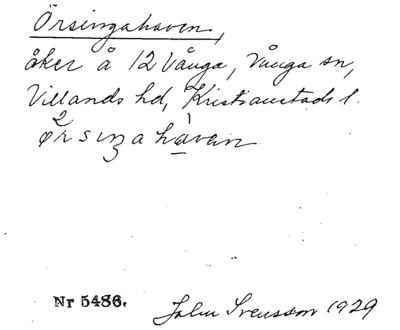 Örsingahaven,
åker å 12 Vånga, Vånga sn,
Villands hd, Kristianstads l.
Nr 5486.
John Svensson 1929